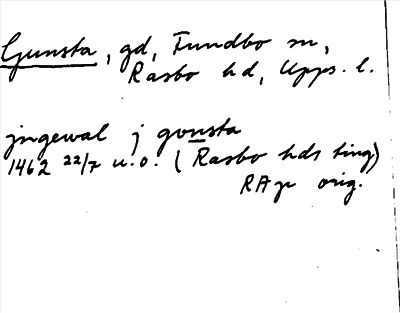 Gunsta, gd, Funbo sn,
Rasbo hd, Upps. l.
jngewal j gonsta
1462 22/7 u.o. (Rasbo hds ting)
RAp orig.